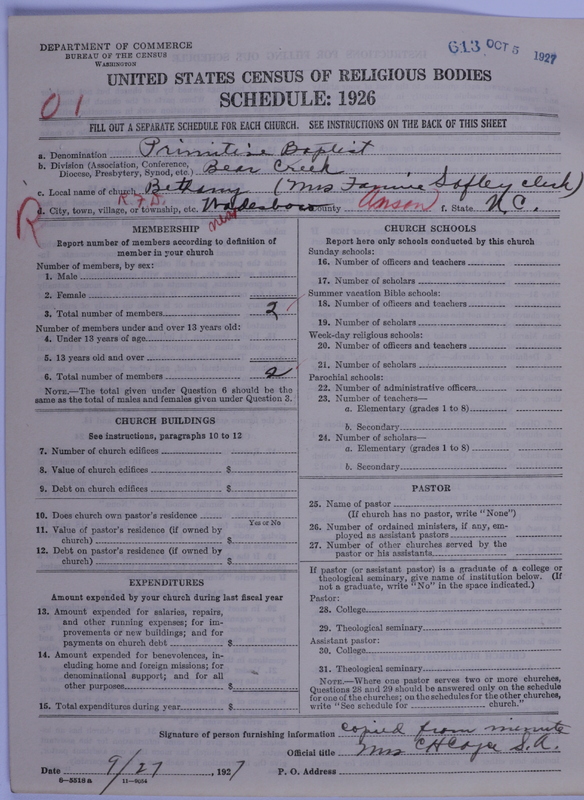 DEPARTMENT OF COMMERCE
BUREAU OF THE CENSUS
WASHINGTON
613 OCT 5 1927
UNITED STATES CENSUS OF RELIGIOUS BODIES
SCHEDULE: 1926
01
FILL OUT A SEPARATE SCHEDULE FOR EACH CHURCH. SEE INSTRUCTIONS ON THE BACK OF THIS SHEET
a. Denomination Primitive Baptist
b. Division (Association, Conference, Diocese, Presbytery, Synod, etc.) Bear Creek
c. Local name of church Bethany (Mrs Fannie Sofley clerk)
R
R.F.D.
d. City, town, village, or township, etc. Wadesboro County Anson f. State N.C.
near
MEMBERSHIP
Report number of members according to definition of
member in your church
Number of members, by sex:
1. Male
2. Female
3. Total number of members 2
Number of members under and over 13 years old:
4. Under 13 years of age
5. 13 years old and over
6. Total number of members 2
NOTE.—The total given under Question 6 should be the
same as the total of males and females given under Question 3.
CHURCH BUILDINGS
See instructions, paragraphs 10 to 12
7. Number of church edifices
8. Value of church edifices $
9. Debt on church edifices $
10. Does church own pastor's residence
Yes or No
11. Value of pastor's residence (if owned by
church) $
12. Debt on pastor's residence (if owned by
church) $
EXPENDITURES
Amount expended by your church during last fiscal year
13. Amount expended for salaries, repairs,
and other running expenses; for im-
provements or new buildings; and for
payments on church debt $
14. Amount expended for benevolences, in-
cluding home and foreign missions; for
denominational support; and for all
other purposes $
15. Total expenditures during year $
CHURCH SCHOOLS
Report here only schools conducted by this church
Sunday schools:
16. Number of officers and teachers
17. Number of scholars
Summer vacation Bible schools:
18. Number of officers and teachers
19. Number of scholars
Week-day religious schools:
20. Number of officers and teachers
21. Number of scholars
Parochial schools:
22. Number of administrative officers
23. Number of teachers—
a. Elementary (grades 1 to 8)
b. Secondary
24. Number of scholars—
a. Elementary (grades 1 to 8)
b. Secondary
PASTOR
25. Name of pastor
(If church has no pastor, write "None")
26. Number of ordained ministers, if any, em-
ployed as assistant pastors
27. Number of other churches served by the
pastor or his assistants
If pastor (or assistant pastor) is a graduate of a college or
theological seminary, give name of institution below. (If
not a graduate, write "No" in the space indicated.)
Pastor:
28. College
29. Theological seminary
Assistant pastor:
30. College
31. Theological seminary
NOTE.—Where one pastor serves two or more churches,
Questions 28 and 29 should be answered only on the schedule
for one of the churches; on the schedules for the other churches,
write "See schedule for church."
Signature of person furnishing information copied from minute
Official title Mrs C H S.A.
Date 9/27, 1927 P. O. Address
6-5518a 11-9684